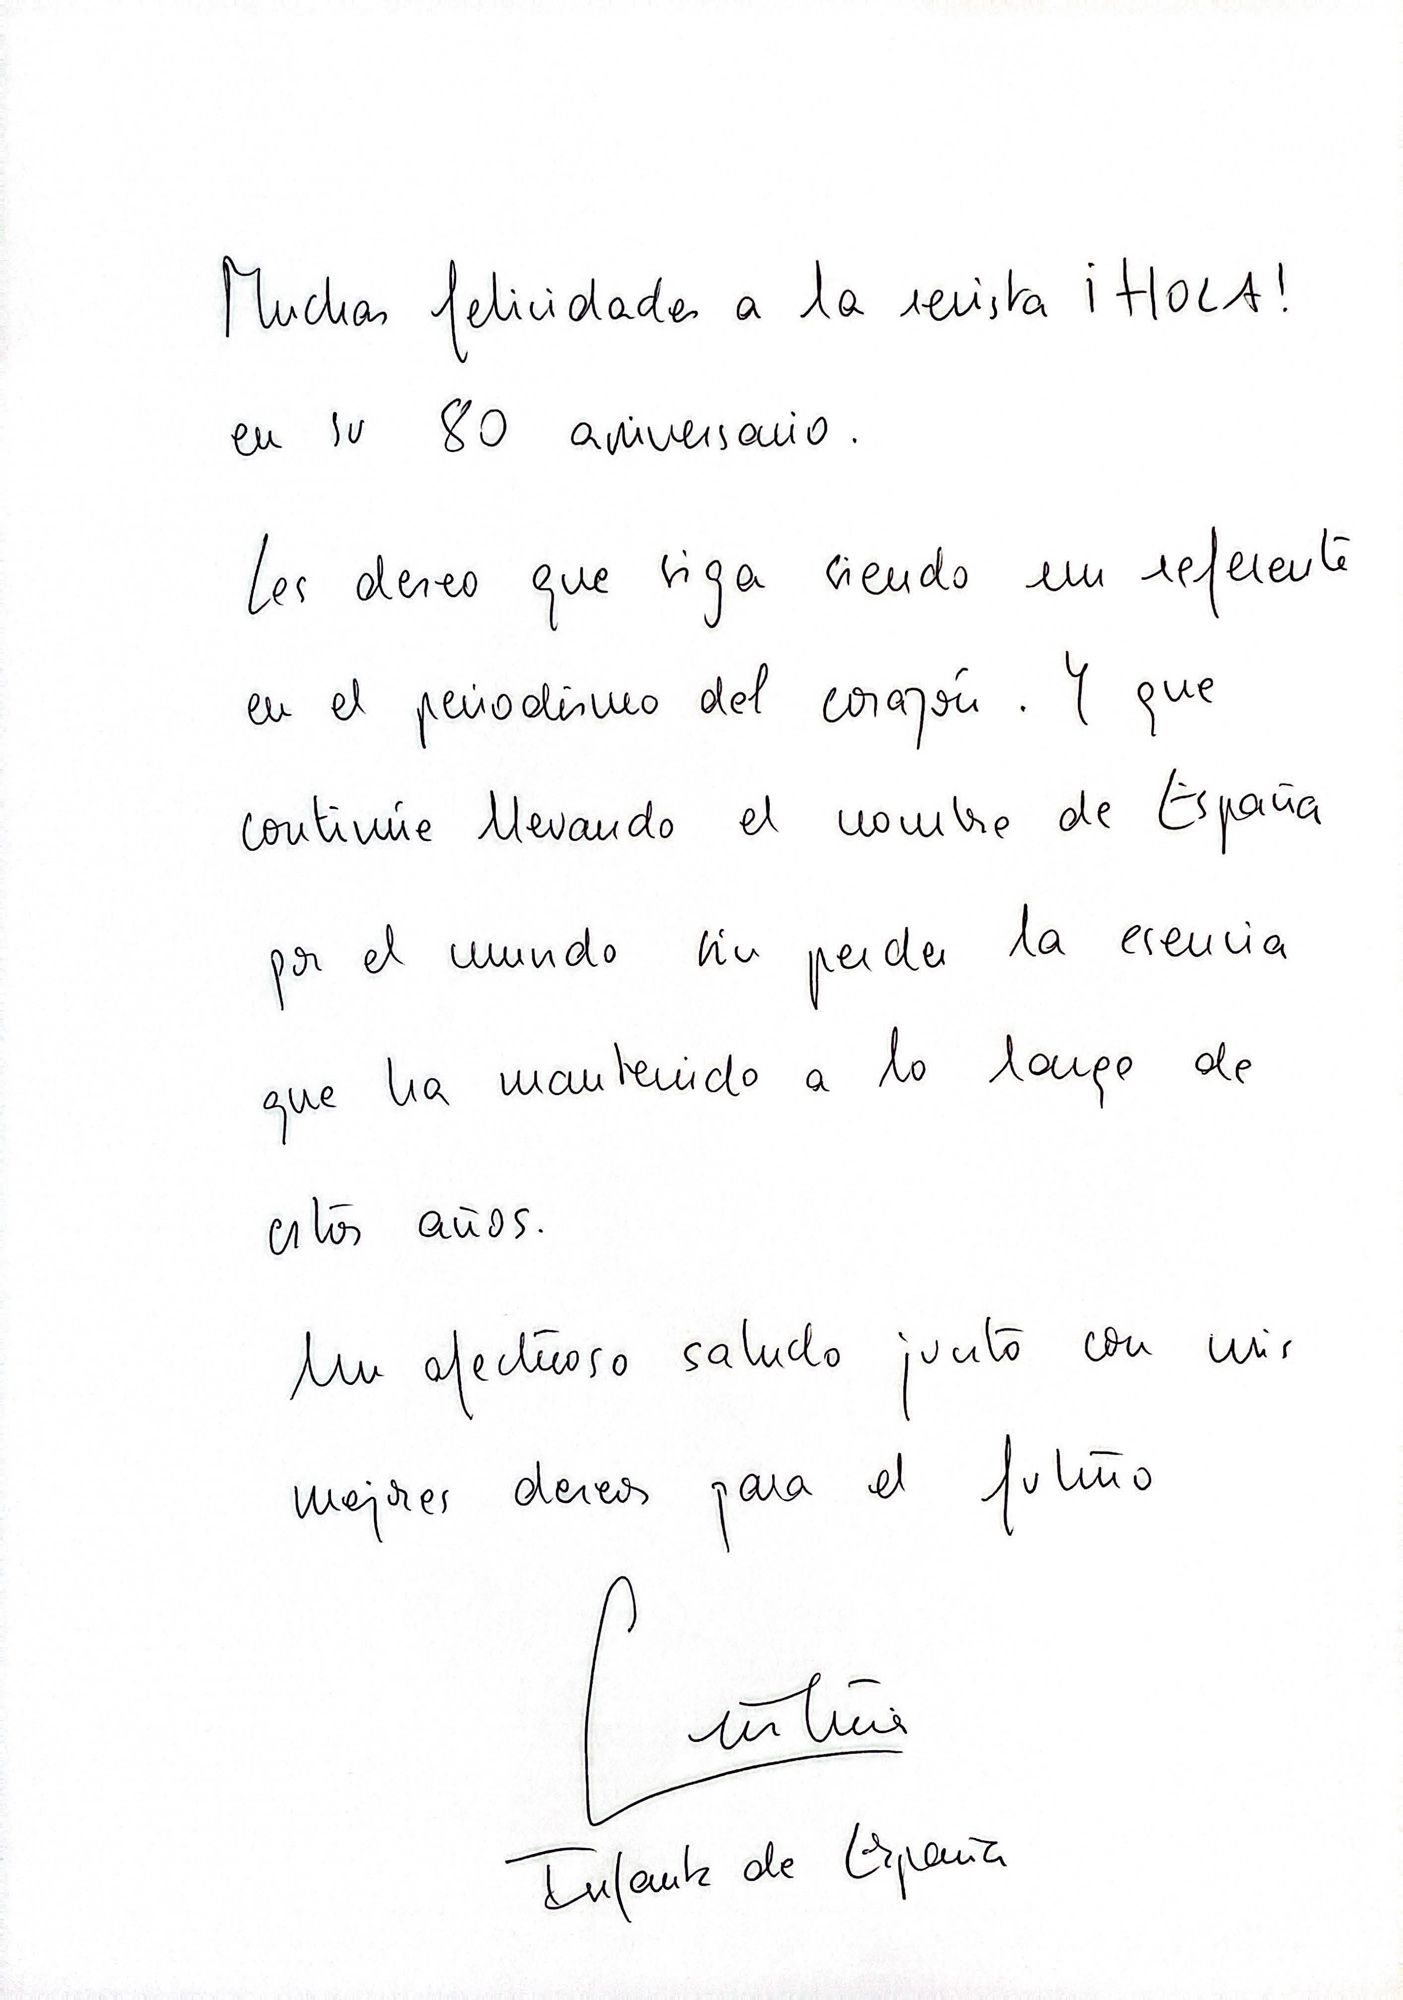 Muchas felicidades a la revista ¡HOLA!
en su 80 aniversario.
Les deseo que siga siendo un referente
en el periodismo del corazón. Y que
continúe llevando el nombre de España
por el mundo sin perder la esencia
que ha mantenido a lo largo de
estos años.
Un afectuoso saludo junto con mis
mejores deseos para el futuro
Cristina
Infanta de España